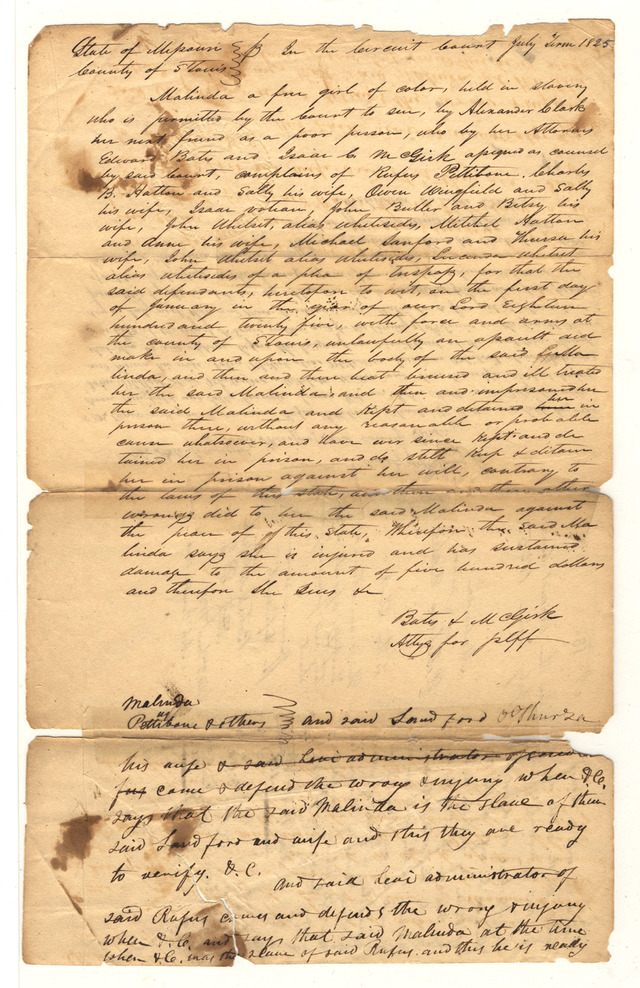 State of Missouri
County of St Louis } ss In the Circuit Court July Term 1825
Malinda a free girl of color, held in slavery
who is permitted by the Court to sue, by Alexander Clark
her next friend as a poor person, who by her Attornies
Edward Bates and Isaac C McGirk assigned as counsel
by said Court, complains of Rufus Pettibone, Charles
B. Hatton and Sally his wife, Owen Wingfield and Sally
his wife, Isaac John Butler and Betsy his
wife, John Whitset, alias Whitesides, Mitchel Hatton
and Anne his wife, Michael Sanford and Thursa his
wife, John Whitset alias Whitesides, Lucinda Whitset
alias Whitesides of a plea of trespass, for that the
said defendants, heretofore to wit, on the first day
of January in the year of our Lord Eighteen
hundred and twenty five, with force and arms at
the county of St Louis, unlawfully an assault did
make in and upon the body of the said Ma
linda, and then and there beat bruised and ill treated
her the said Malinda and then and imprisoned her
the said Malinda and kept and detained her in
prison there, without any reasonable or probable
cause whatsoever, and have ever since kept and de
tained her in prison, and do still keep & detain
her in prison against her will, contrary to
the laws of this state, and then and there other
wrongs did to her the said Malinda against
the peace of of this state. Wherefore the said Ma
linda says she is injured and has sustained
damage to the amount of five hundred dollars
and therefore she sues &c
Bates & McGirk
Attys for plff
Malinda
vs
Pettibone & others } and said Sandford & Thurza
his wife & said Levi administrator of
come & defend the wrong & injury when &C.
says that the said Malinda is the slave of them
said Sandford and wife and this they are ready
to verify. &.C.
and said Levi administrator of
said Rufus comes and defends the wrong & injury
when &.C. and says that said Malinda at the time
when &.C. was the slave of said Rufus. and this he is ready